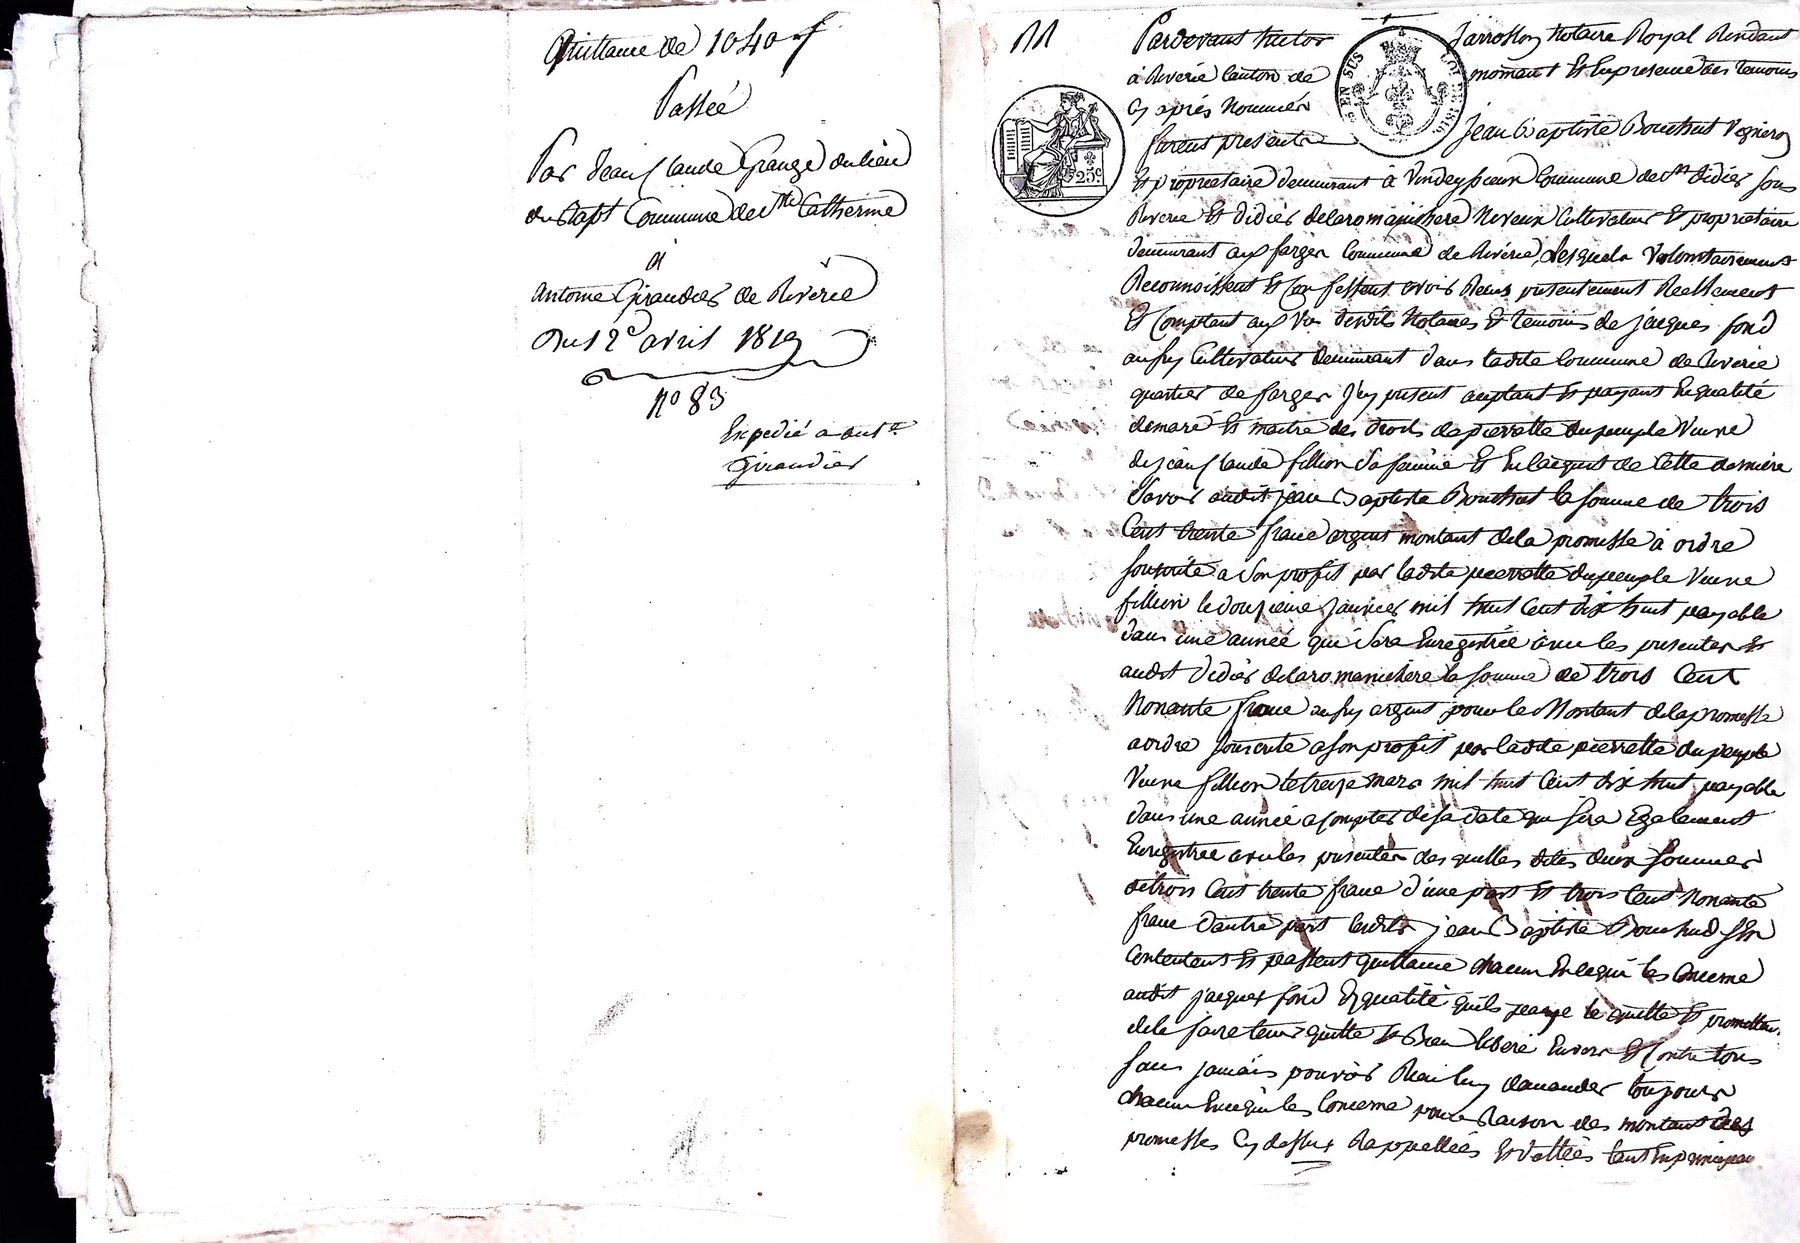 Quittance de 1040 f
Passée
Par Jean Claude Grange du lieu
du Commune de Ste Catherine
à
antoine Giraudier de Riverie
Du 12e avril 1819
n° 83
Expedié a ant.e
Giraudier
Pardevant Jarrosson Notaire Royal Residant
à Riverie Canton de mornant Et En presence des temoins
Cy après Nommés
furent presents Jean Baptiste Bouchut Vigneron
EN SUS
LOI DE 1816
25c
Et proprietaire demeurant à Commune de St didier sous
Riverie Et didier delaromanichere Neveux Cultivateur Et proprietaire
demeurant aux farges Commune de Riverie, Lesquels Volontairement
Reconnoissent Et Confessent avoir Recus presentement Reellement
Et Comptant aux Vus desdits Notaires Et temoins de jacques fond
aussy Cultivateur demeurant dans ladite Commune de Riverie
quartier de farges J'cy present acceptant Et payant En qualité
de marÿ Et maitre des droits de pierrette dupeuple Veuve
de jean Claude fillion Sa femme Et En l'acquit de Cette derniere
Savoir audit jean Baptiste Bouchut la somme de trois
Cent trente franc argent montant de la promesse à ordre
souscrite a Son profit par ladite pierrette dupeuple Veuve
fillion le douzieme janvier mil huit Cent dix huit payable
dans une année qui Sera Enregistrée avec les presentes Et
audit didier delaromanichere la somme de trois Cent
Nonante franc aussy argent pour le Montant de la promesse
a ordre souscrite a son profit par ladite pierrette dupeuple
Veuve fillion le treize mars mil huit Cent dix huit payable
dans une année a compter de sa date qui sera Egalement
Enregistrée avec les presentes des quelles dites deux sommes
de trois Cent trente franc d'une part Et trois Cent Nonante
franc d'autre part lesdits jean Baptiste Bouchud
Contentent Et passent quittance chacun En ce qui les Concerne
audit jacques fond En qualité qu'ils le quitte Et promettent
de le faire tenir quitte Et Bien liberé Envers Et Contre tous
sans jamais pouvoir Rien luy demander toujours
chacun En ce qui les Concerne pour Raison des montant des
promesses Cy dessus Rappellées Et dattées tant En principau